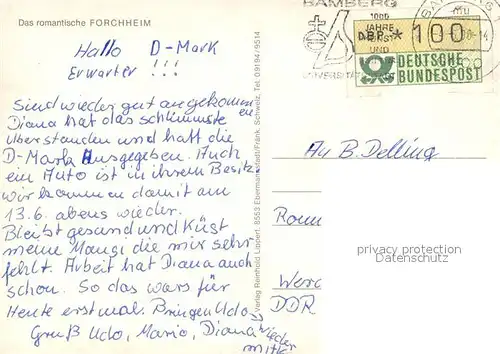 Das romantische FORCHHEIM
Hallo D-Mark
Erwarter !!!
Sind wieder gut angekommen
Diana hat das schlimmste
überstanden und hatt die
D-Mark Ausgegeben. Auch
ein Auto ist in ihrem Besitz.
wir kommen damit am
13.6. abens wieder.
Bleibt gesund und Küst
meine Mangi die mir sehr
fehlt. Arbeit hat Diana auch
schon. So das wars für
Heute erst mal. Bringen Udo
wieder
mit
Gruß Udo, Mario, Diana
Verlag Reinhold Lippert, 8553 Ebermannstadt/Fränk. Schweiz, Tel. 09194/9514
BAMBERG
1000
JAHRE
KUNST
UND
UNIVERSITÄT
BAMBERG
DBP * 100
DEUTSCHE
BUNDESPOST
An B. Delling
Ronn
Werd
DDR
privacy protection
Datenschutz